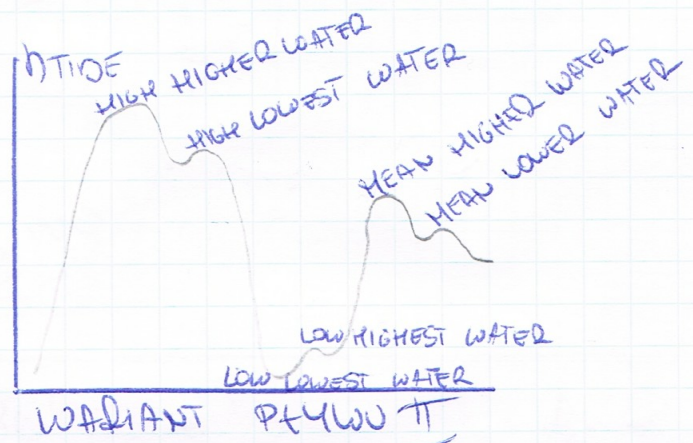 TIDE
HIGH HIGHER WATER
HIGH LOWEST WATER
MEAN HIGHER WATER
MEAN LOWER WATER
LOW HIGHEST WATER
LOW LOWEST WATER
WARIANT PŁYWU II